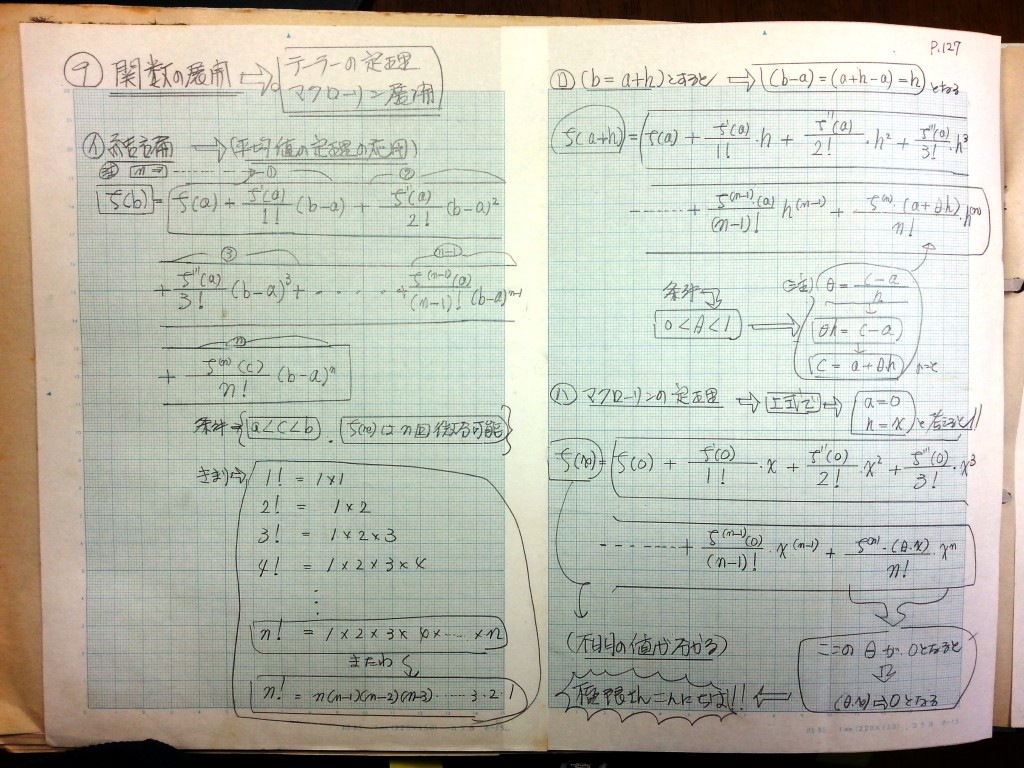 ⑨ 関数の展開 ⇨ テーラーの定理
マクローリン展開
㋑ 結論 ⇨ (平均値の定理の応用)
① ②
f(b) = f(a) + f'(a)/1! (b-a) + f''(a)/2! (b-a)²
③ (n-1)
+ f'''(a)/3! (b-a)³ + ・・・・・ + f⁽ⁿ⁻¹⁾(a)/(n-1)! (b-a)ⁿ⁻¹
(n)
+ f⁽ⁿ⁾(c)/n! (b-a)ⁿ
条件→ { a<c<b . f(x)はn回微分可能 }
きまり→
1! = 1×1
2! = 1×2
3! = 1×2×3
4! = 1×2×3×4
⋮
n! = 1×2×3×4×・・・・×n
または
n! = n(n-1)(n-2)(n-3)・・・・・3・2・1
P.127
㋺ (b = a+h)とすると ⇨ (b-a) = (a+h-a) = h となる
f(a+h) = f(a) + f'(a)/1!・h + f''(a)/2!・h² + f'''(a)/3!・h³
・・・・・・ + f⁽ⁿ⁻¹⁾(a)/(n-1)! h⁽ⁿ⁻¹⁾ + f⁽ⁿ⁾(a+θh)/n!・h⁽ⁿ⁾
条件
0<θ<1 ⇨
(注) θ = c-a/h
θh = c-a
c = a+θh
㋩ マクローリンの定理 ⇨ 上式で → a=0
h=x と
f(x) = f(0) + f'(0)/1!・x + f''(0)/2!・x² + f'''(0)/3!・x³
・・・・・・・ + f⁽ⁿ⁻¹⁾(0)/(n-1)!・x⁽ⁿ⁻¹⁾ + f⁽ⁿ⁾・(θ.x)/n!・xⁿ
(不明の値が分かる)
ここのθが0となると
(θ.x)→0となる
極限さんこんにちは!!